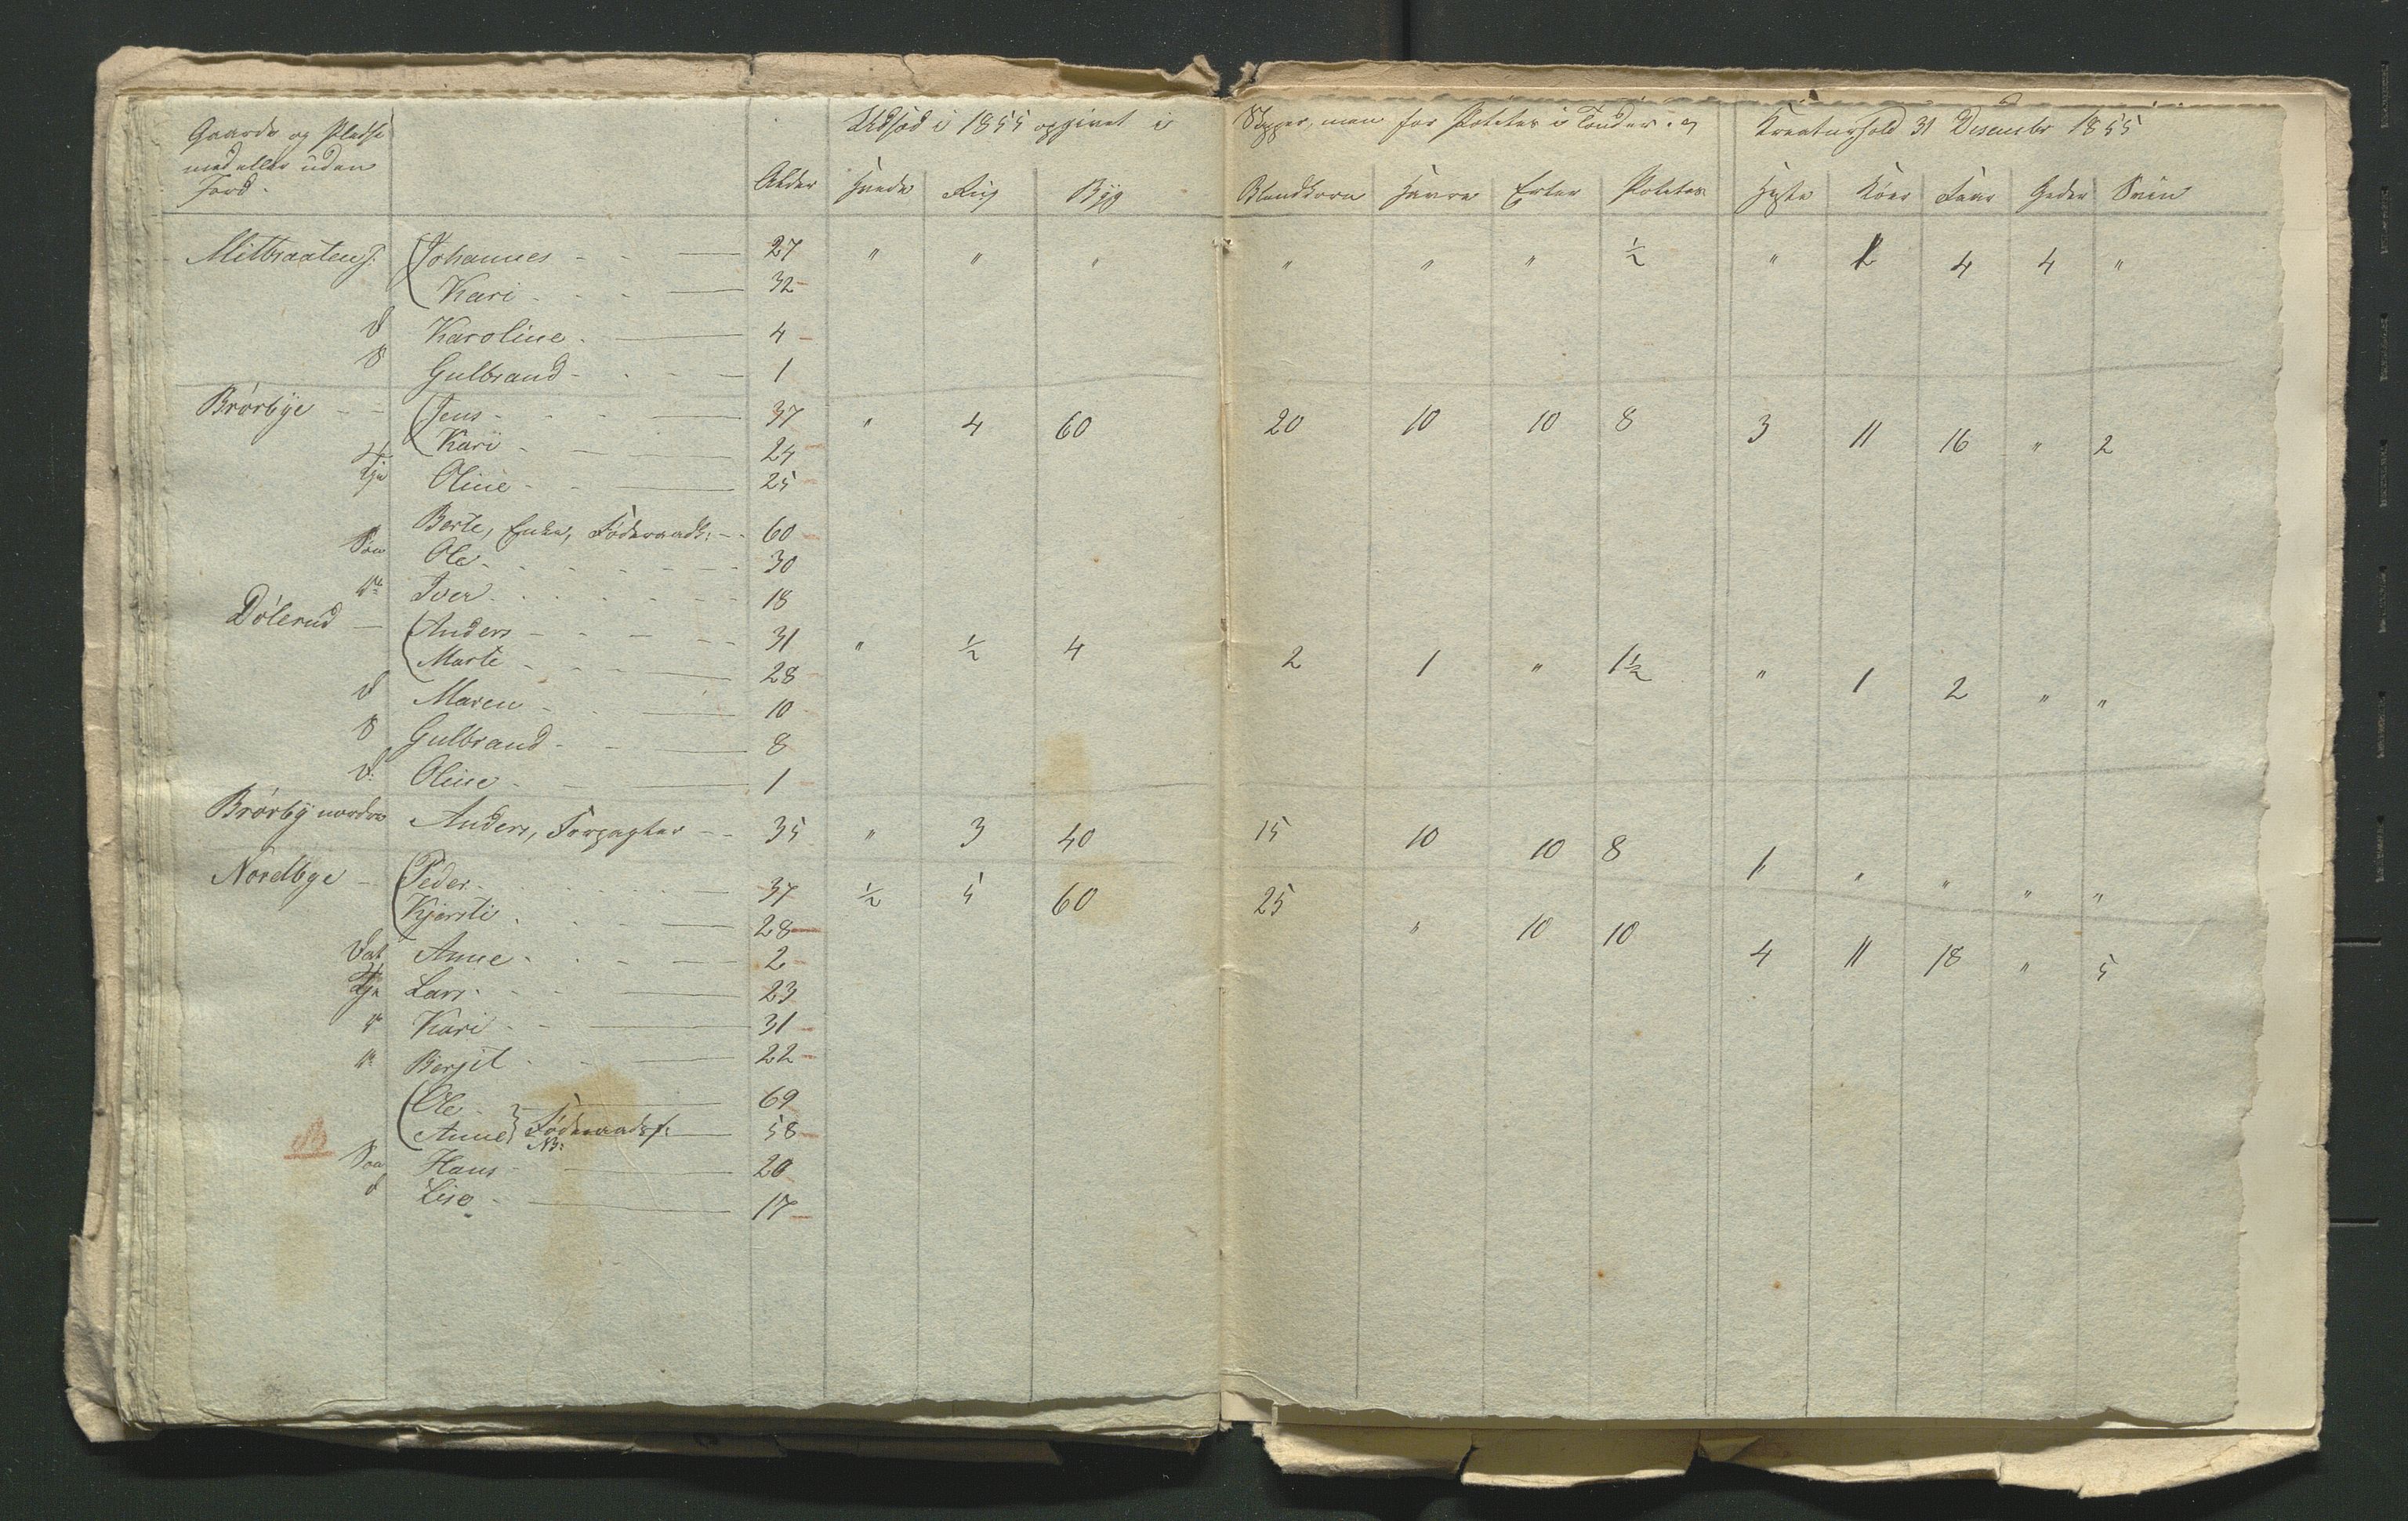 Gaarde og Pladse
med eller uden
Jord.
Alder
Udsæd i 1855 opgivet i
Hvede Rug Byg
Skjæper, men for Poteter i Tønder. og
Blandkorn Havre Erter Poteter
Kreaturhold 31 Desember 1855
Heste Köer Faar Geder Sviin
Mitbraaten J: Johannes - - — 27 " " " " " " ½ " 2 4 4 "
Kari - - - — 32
d Karoline - — 4
S Gulbrand - - - — 1
Brørbye - - Jens - - - — 37 " 4 60 20 10 10 8 3 11 16 " 2
Kari - - — 24
Tje Oline - - — 25
Berte, Enke, Föderaadk: - - 60
Søn Ole - - - - - - 30
do Iver - - - - - - 18
Dölerud — Anders - - - - - 31 " ½ 4 2 1 " 1½ " 1 2 " "
Marte - - - — 28
d Maren - - — 10
S Gulbrand - - — 8
d: Oline - - — 1
Brørby nordre Anders, Forpagter - - 35 " 3 40 15 10 10 8 1 " " " "
Nordbye - Peder - - - - - — 37 ½ 5 60 25 " 10 10 4 11 18 " 5
Kjersti - - - — 28
Dat Anne - - - — 2
Tje Lars - - - — 23
do Kari - - — 31
do Bergit - - — 22
Ole - — 69
Anne } Föderaadsf: — 58
NB:
Søn Hans - — 20
d Lise - — 17